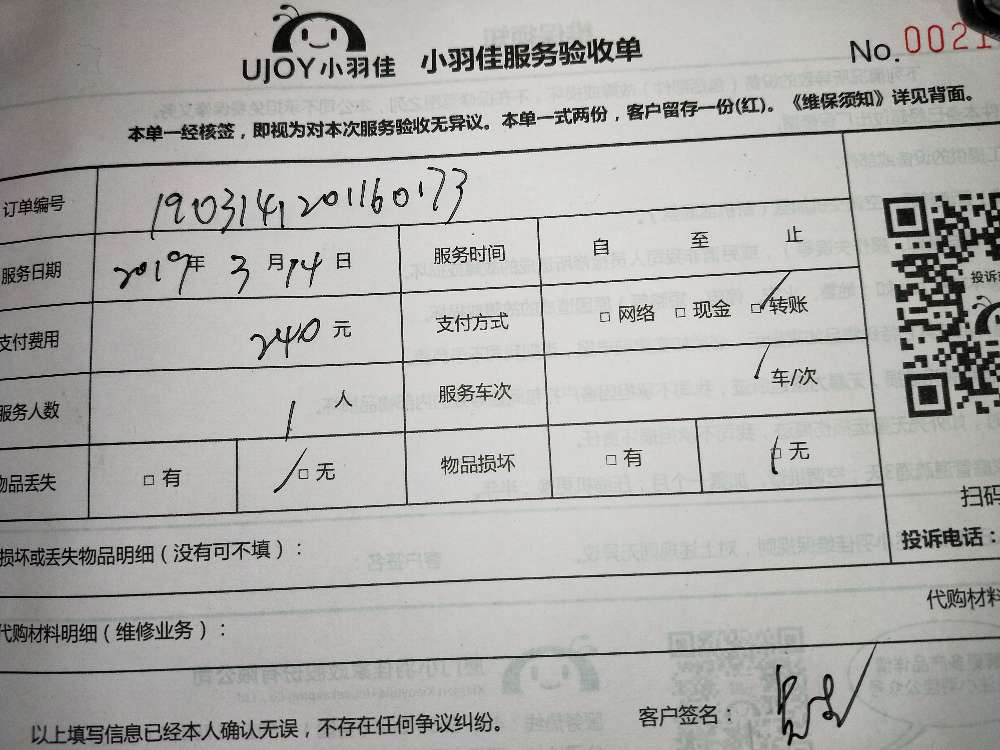 UJOY小羽佳 小羽佳服务验收单 No.0021
本单一经核签，即视为对本次服务验收无异议。本单一式两份，客户留存一份(红)。《维保须知》详见背面。
订单编号 1903141201160173
服务日期 2019年 3月14日 服务时间 自 至 止
支付费用 240元 支付方式 □网络 □现金 □转账
投诉
服务人数 1人 服务车次 1车/次
物品丢失 □有 □无 物品损坏 □有 □无
扫码
损坏或丢失物品明细（没有可不填）：
投诉电话：
代购材料明细（维修业务）：
代购材料
以上填写信息已经本人确认无误，不存在任何争议纠纷。 客户签名：